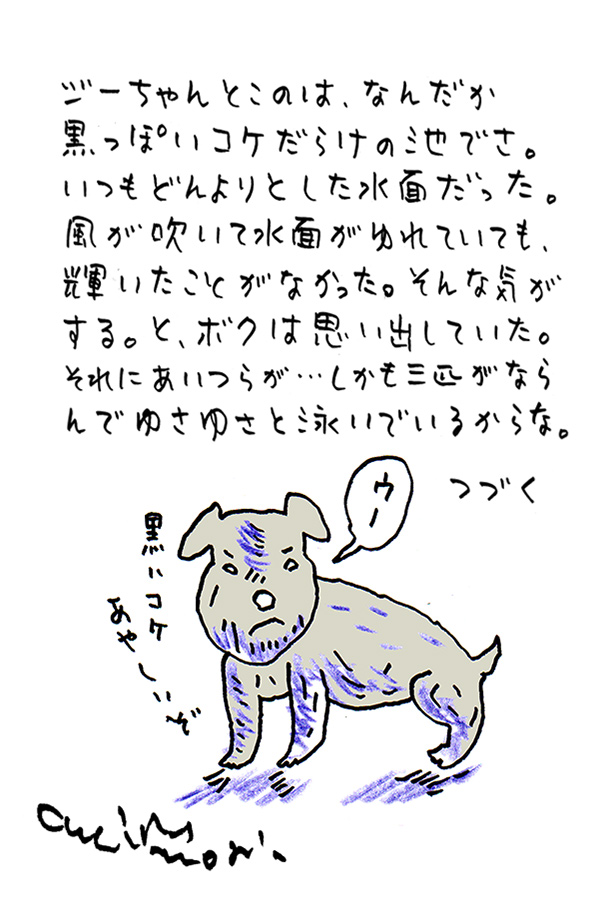 ジーちゃんとこのは、なんだか
黒っぽいコケだらけの池でさ。
いつもどんよりとした水面だった。
風が吹いて水面がゆれていても、
輝いたことがなかった。そんな気が
する。と、ボクは思い出していた。
それにあいつらが…しかも三匹がなら
んでゆさゆさと泳いでいるからな。
つづく
ウー
黒いコケ
あやしいぞ